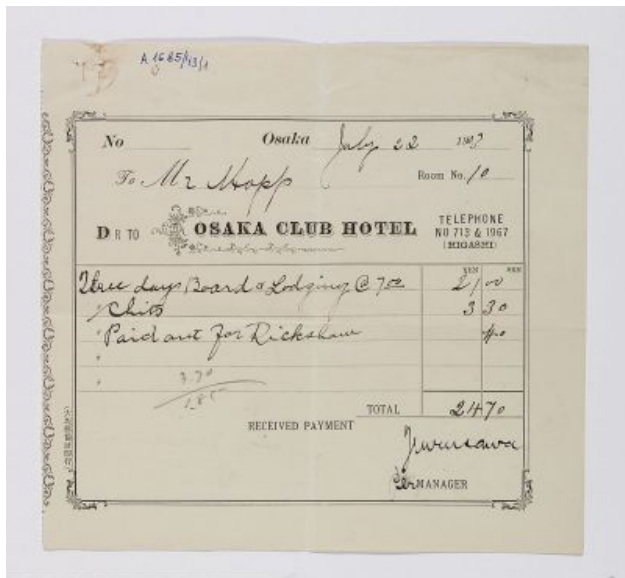 A 1685/13/1
No Osaka July 22 1903
To Mr Hopp Room No. 10
DR TO OSAKA CLUB HOTEL TELEPHONE NO 713 & 1967 (HIGASHI)
YEN SEN
Three days Board & Lodging @ 7.00 21 00
" Chits 3 30
" Paid out for Rickshaw 40
"
" 3.70
TOTAL 24 70
RECEIVED PAYMENT
Per MANAGER